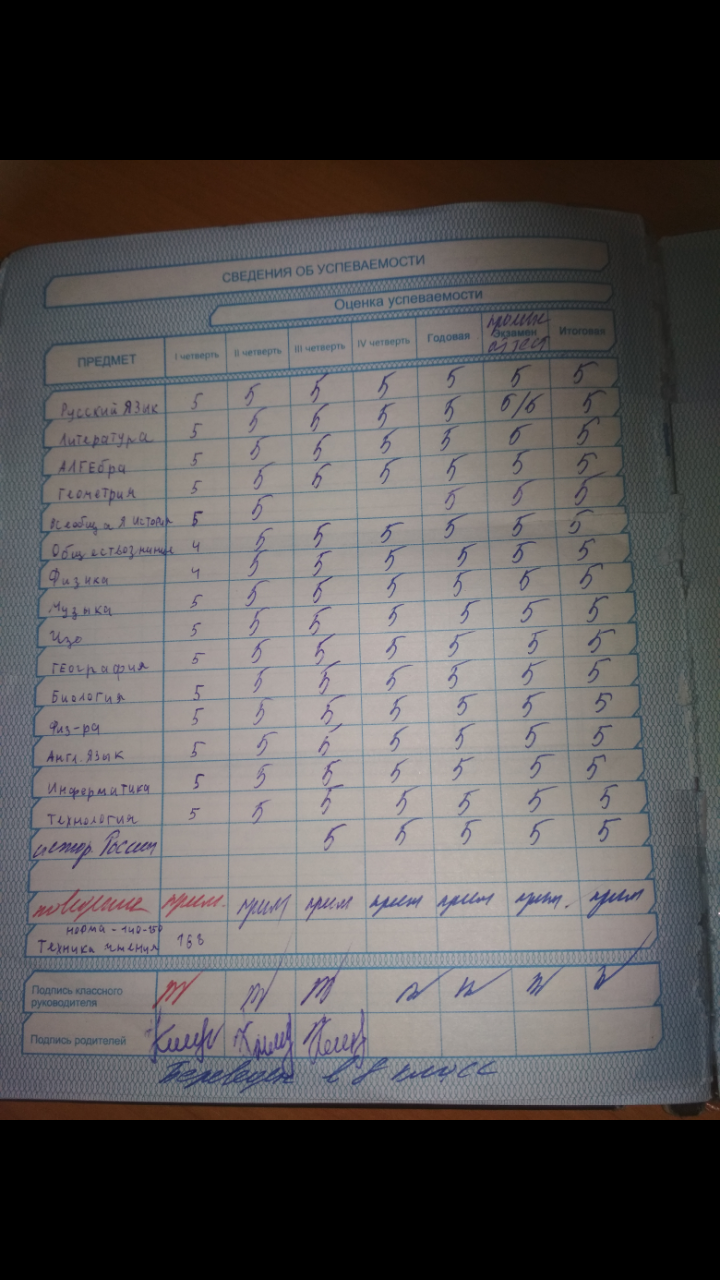 СВЕДЕНИЯ ОБ УСПЕВАЕМОСТИ
Оценка успеваемости
ПРЕДМЕТ I четверть II четверть III четверть IV четверть Годовая Экзамен Итоговая
Русский Язык 5 5 5 5 5 5 5
Литература 5 5 5 5 5 5/5 5
Алгебра 5 5 5 5 5 5 5
Геометрия 5 5 5 5 5 5 5
Всеобщая История 5 5 5 5 5
Обществознание 4 5 5 5 5 5 5
Физика 4 5 5 5 5 5 5
Музыка 5 5 5 5 5 5 5
Изо 5 5 5 5 5 5 5
География 5 5 5 5 5 5 5
Биология 5 5 5 5 5 5 5
Физ-ра 5 5 5 5 5 5 5
Англ. Язык 5 5 5 5 5 5 5
Информатика 5 5 5 5 5 5 5
Технология 5 5 5 5 5 5 5
истор России 5 5 5 5 5
поведение прим. прим прим прим прим прим. прим
норма - 140-150
Техника чтения 168
Подпись классного
руководителя
Подпись родителей
Переведен в 8 класс